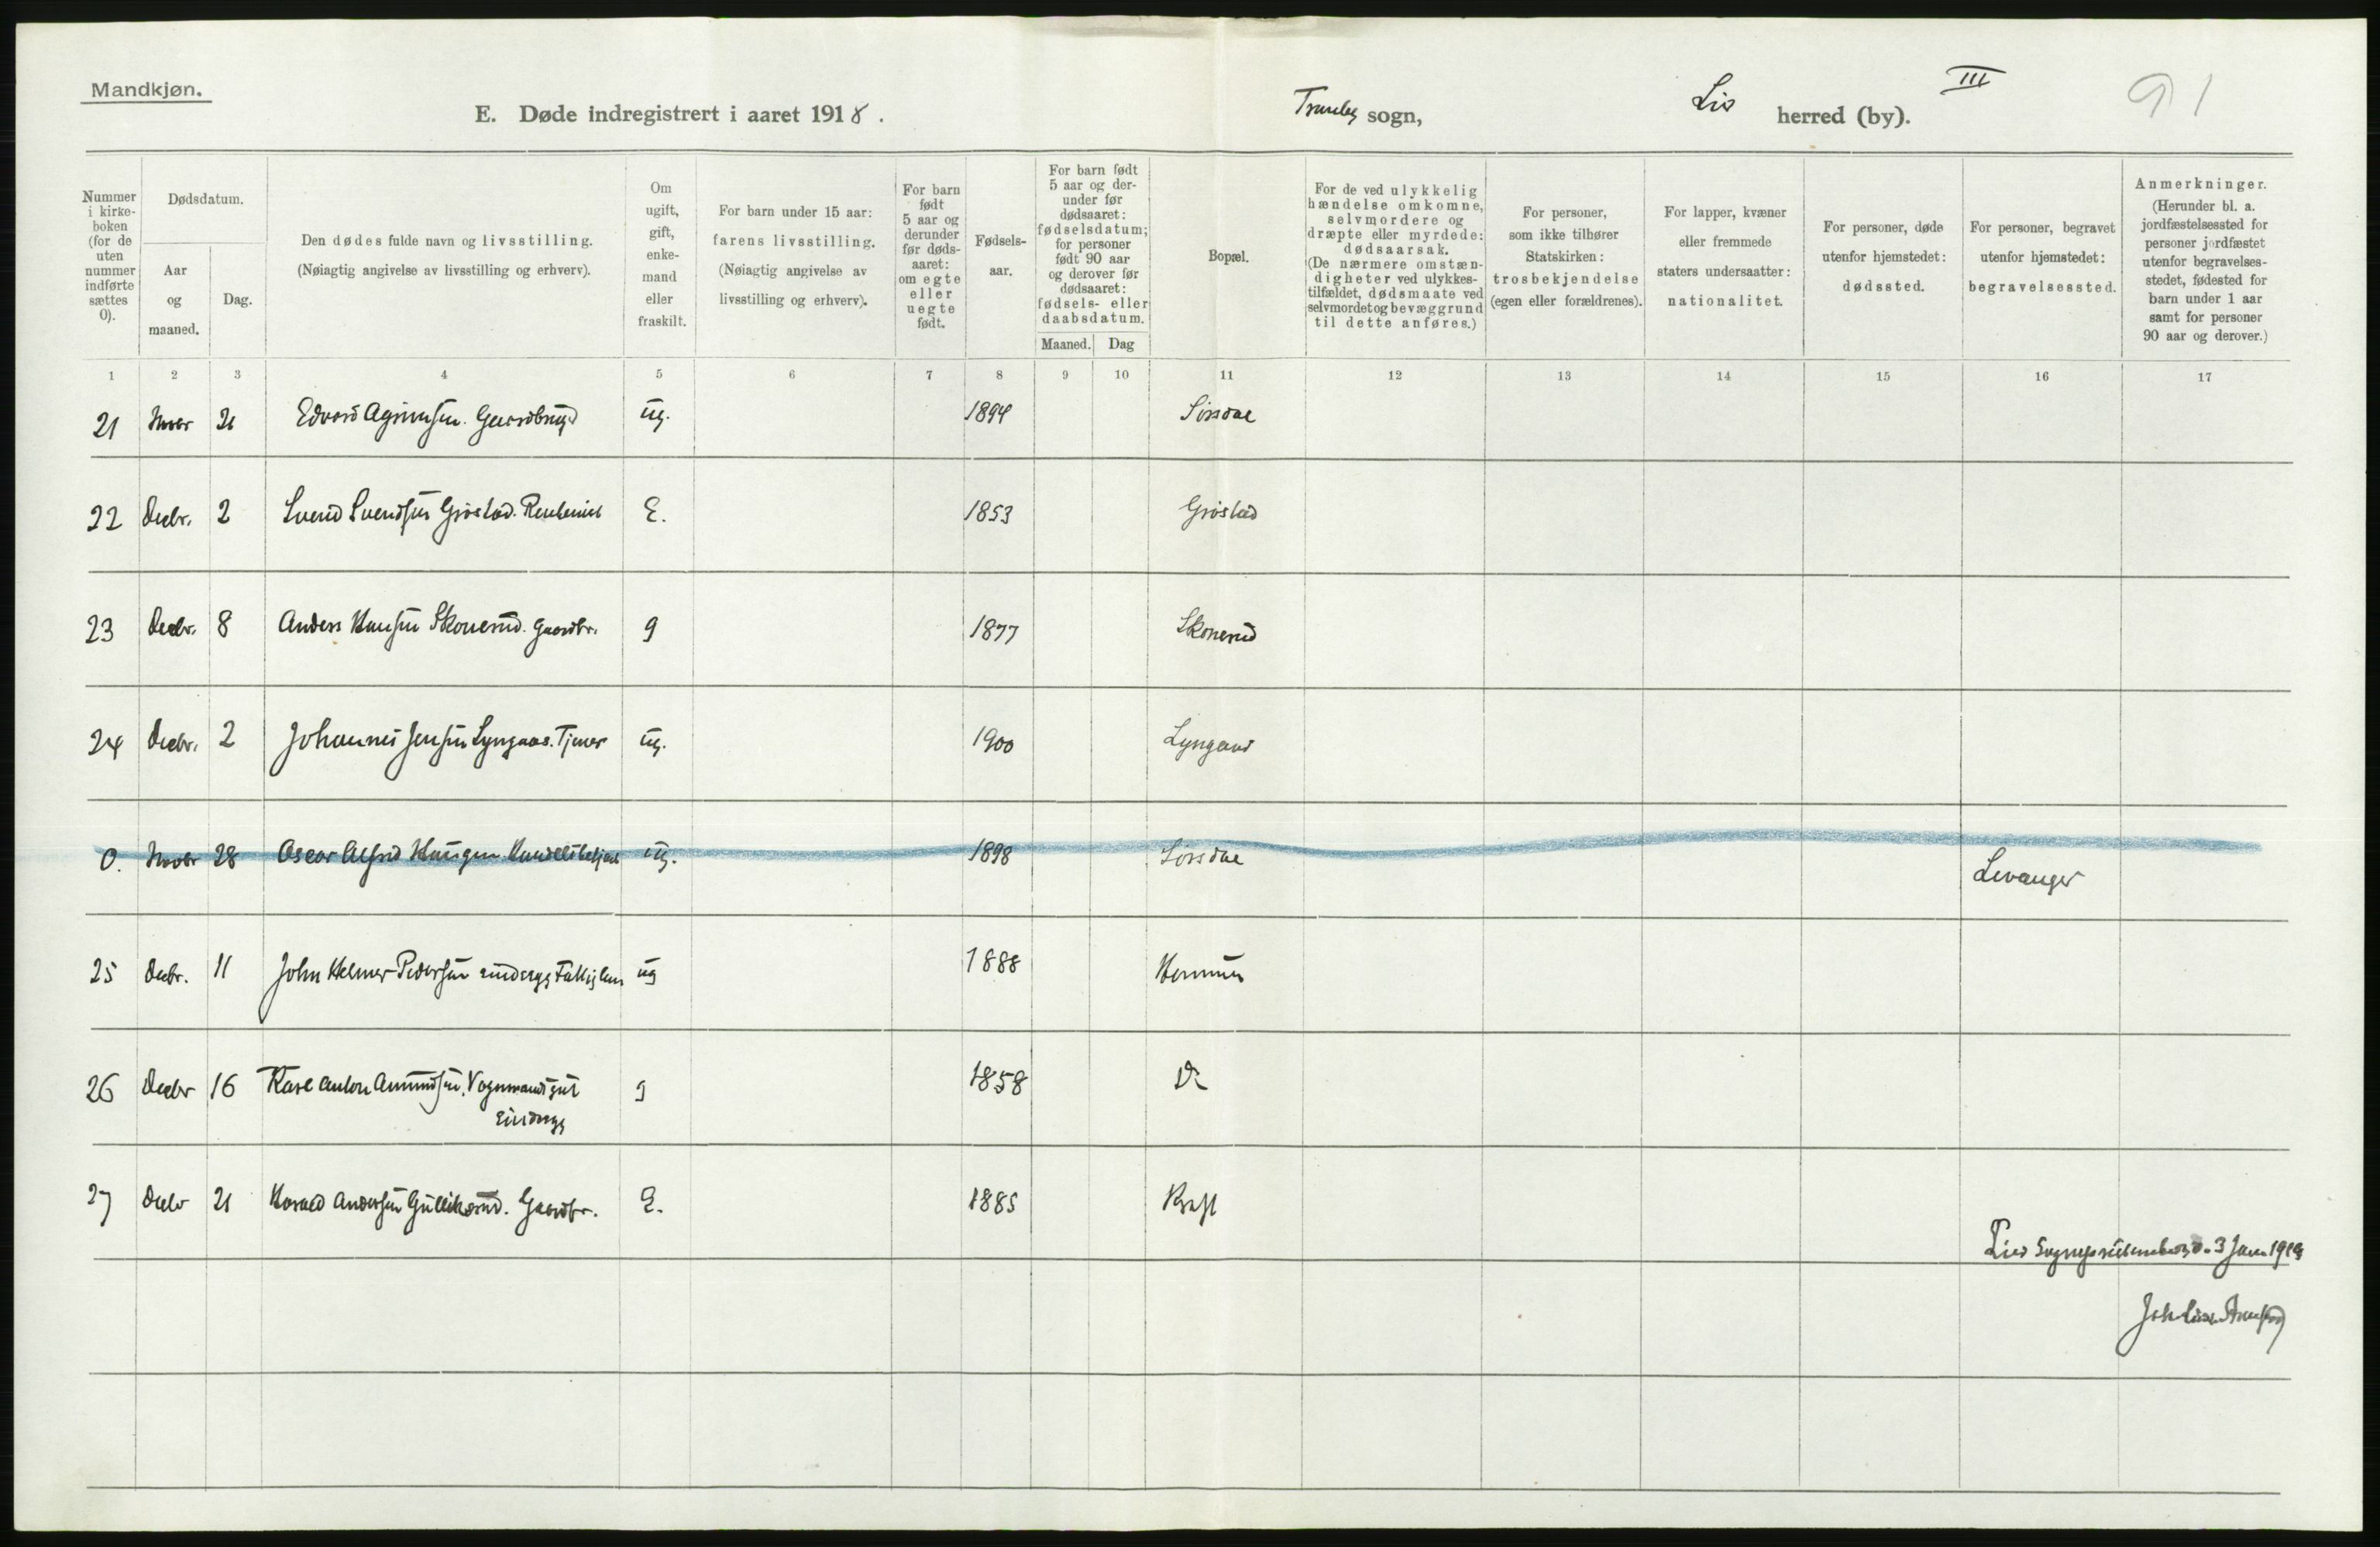 Mandkjøn.
E. Døde indregistrert i aaret 1918.
Tranby sogn,
Lier herred (by).
III
91
Nummer i kirke- boken (for de uten nummer indførte sættes 0).
Dødsdatum.
Aar og maaned.
Dag.
Den dødes fulde navn og livsstilling.
(Nøiagtig angivelse av livsstilling og erhverv).
Om ugift, gift, enke- mand eller fraskilt.
For barn under 15 aar: farens livsstilling. (Nøiagtig angivelse av livsstilling og erhverv).
For barn født 5 aar og derunder før døds- aaret: om egte eller uegte født.
Fødsels- aar.
For barn født 5 aar og der- under før dødsaaret: fødselsdatum; for personer født 90 aar og derover før dødsaaret: fødsels- eller daabsdatum.
Maaned. Dag
Bopæl.
For de ved ulykkelig hændelse omkomne, selvmordere og dræpte eller myrdede: dødsaarsak. (De nærmere omstæn- digheter ved ulykkes- tilfældet, dødsmaate ved selvmordet og bevæggrund til dette anføres.)
For personer, som ikke tilhører Statskirken: trosbekjendelse (egen eller forældrenes).
For lapper, kvæner eller fremmede staters undersaatter: nationalitet.
For personer, døde utenfor hjemstedet: dødssted.
For personer, begravet utenfor hjemstedet: begravelsessted.
Anmerkninger. (Herunder bl. a. jordfæstelsessted for personer jordfæstet utenfor begravelses- stedet, fødested for barn under 1 aar samt for personer 90 aar og derover.)
1 2 3 4 5 6 7 8 9 10 11 12 13 14 15 16 17
21 Novbr 21 Edvard Agrimsen. Gaardbruger ug. 1894
22 Decbr. 2 Svend Svendsen Grøstad. E. 1853 Grøstad
23 Decbr. 8 Anders Hansen Skonerud. Gaardbr. g 1877 Skonerud
24 Decbr. 2 Johannes Jensen Lyngaas. Tjener ug. 1900 Lyngaas
0. Novbr 28 Oscar Alfred Haugen. Handelsbetjent ug. 1898 Levanger
25 Decbr. 11 John Helmer Pedersen ug 1888
26 Decbr 16 Karl Anton Amundsen. g 1858 Do
27 Decbr 21 Harald Andersen Gulliksrud. Gaardbr. E. 1885
3 Jan. 1919